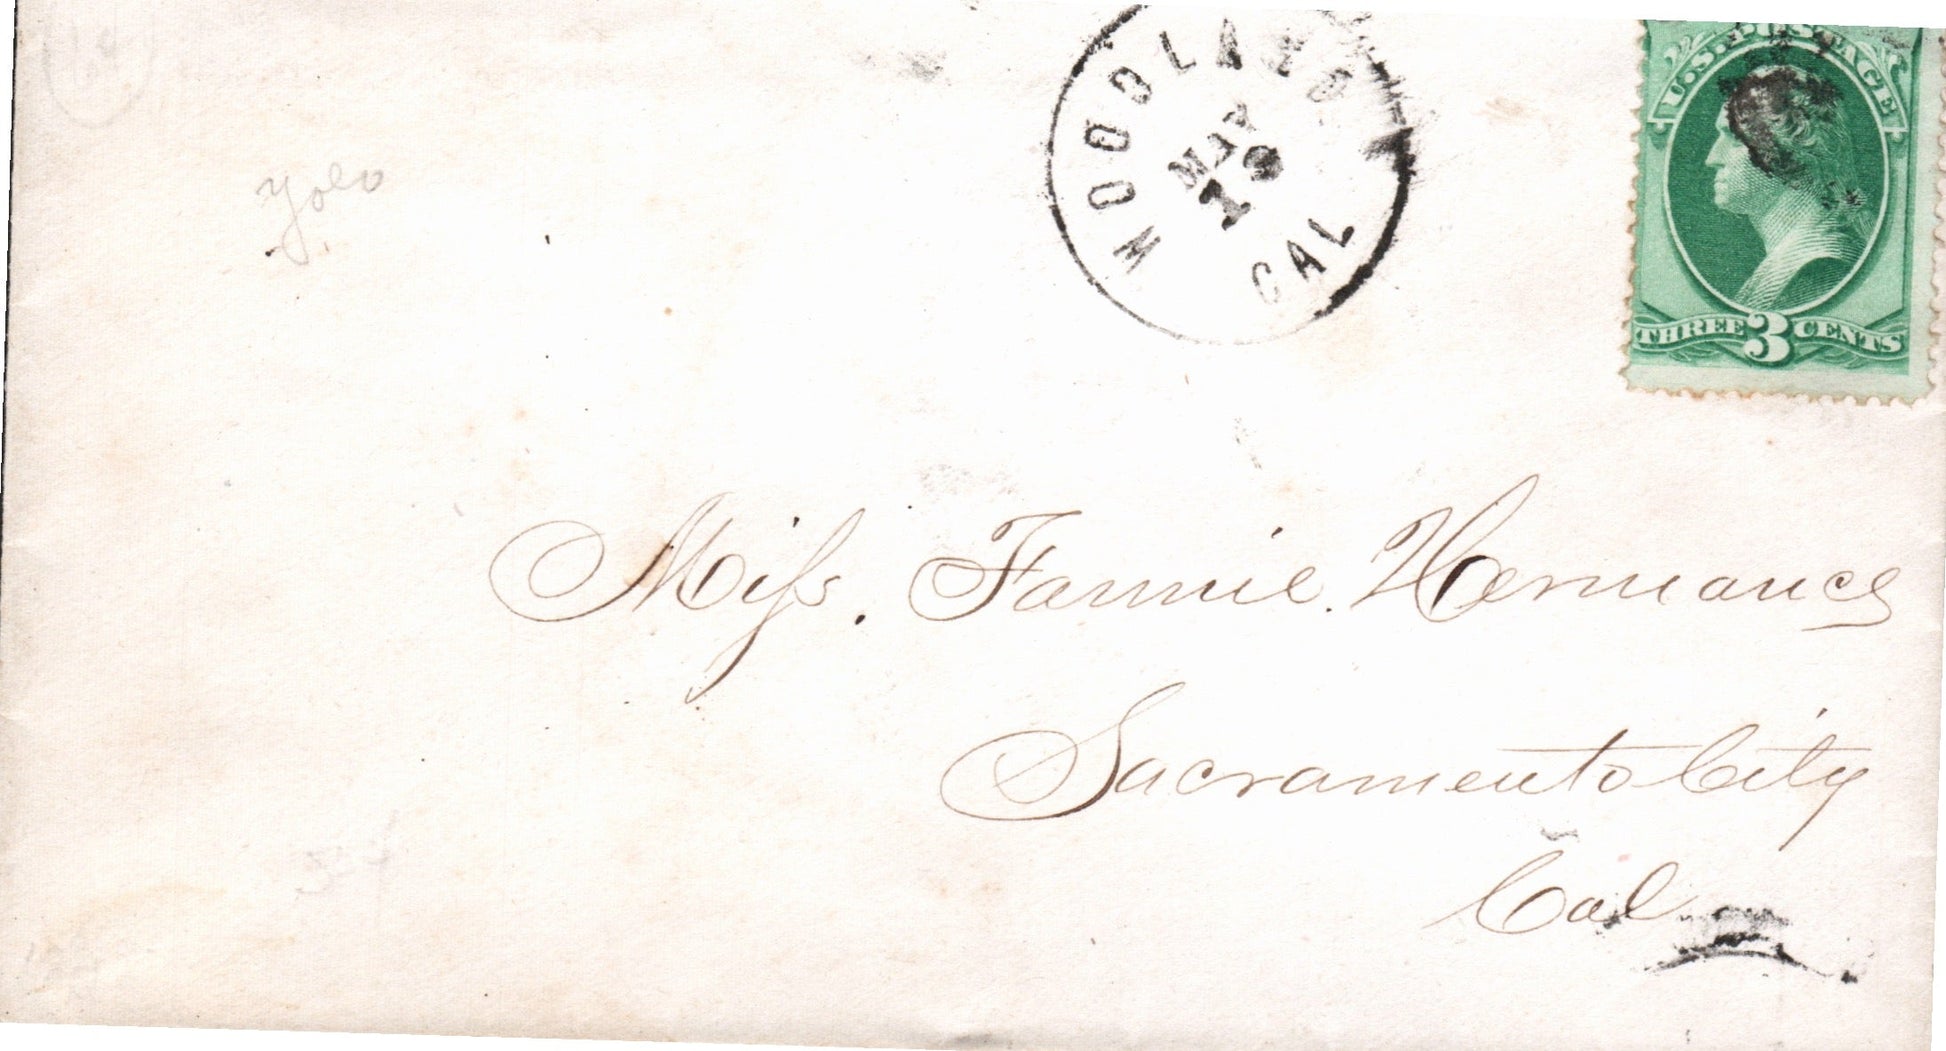 WOODLAND
MAY
CAL
U.S. POSTAGE
THREE 3 CENTS
yolo
Miss. Fannie. Hernance
Sacramento City
Cal